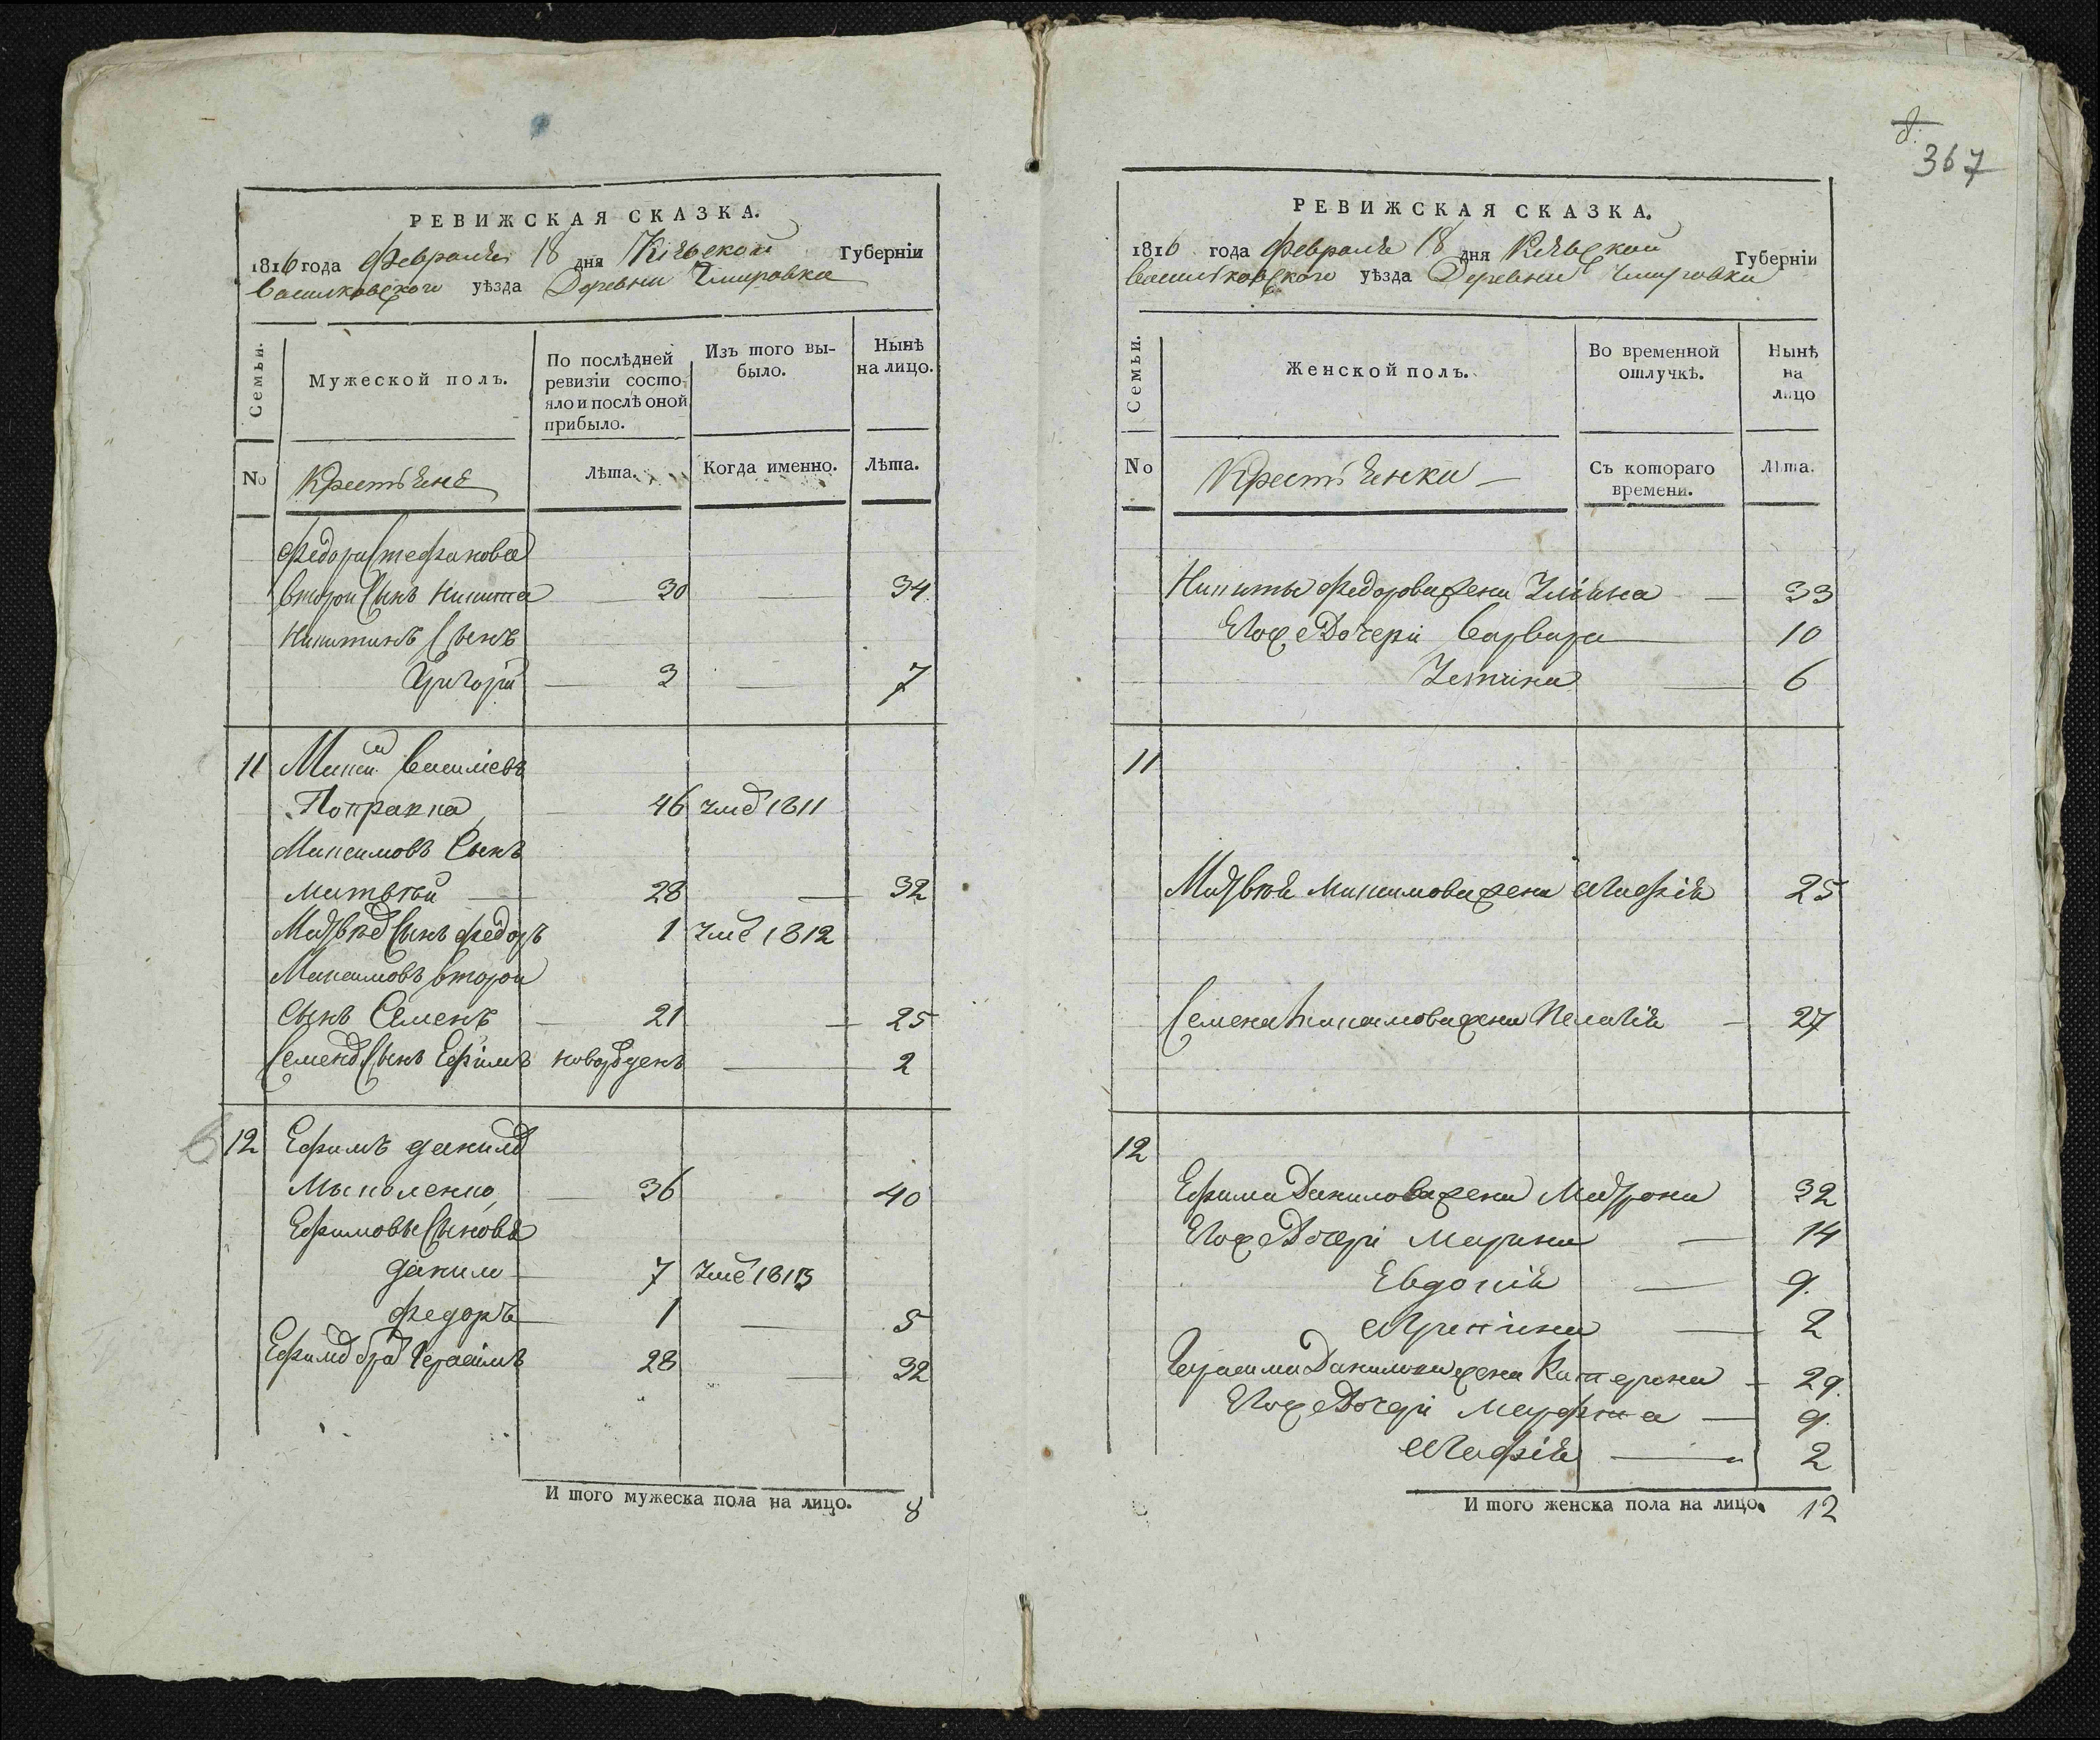 РЕВИЖСКАЯ СКАЗКА.
1816 года Февраля 18 дня Кіевской Губерніи
Василковского уѣзда Деревни Чмировки
Семьи.
Мужеской полъ.
По послѣдней ревизіи состояло и послѣ оной прибыло.
Изъ того выбыло.
Нынѣ на лицо.
No
Крестьяне
Лѣта.
Когда именно.
Лѣта.
Федора Стефанова
второй Сынъ Никита 30 — 34
Никитинъ Сынъ
Григорій — 3 — 7
11 Максим Василіевъ
46 1811
Максимовъ Сынъ
Матвѣй — 28 — 32
Матвѣѣ Сынъ Федоръ 1 1812
Максимовъ второй
Сынъ Семенъ — 21 — 25
Семенъ Сынъ Ефімъ новорожденъ — 2
12 Ефимъ Данилъ
Мыколенко — 36 40
Ефимовы Сыновья
Данило — 7 1813
Федоръ — 1 — 5
Ефима братъ Герасімъ 28 — 32
И того мужеска пола на лицо. 8
367
РЕВИЖСКАЯ СКАЗКА.
1816 года Февраля 18 дня Кіевской Губерніи
Василковского уѣзда Деревни Чмировки
Семьи.
Женской полъ.
Во временной отлучкѣ.
Нынѣ на лицо
No
Крестьянки —
Съ котораго времени.
Лѣта.
Никиты Федорова жена 33
Его же Дочери Варвара — 10
— 6
11
Матвѣя Максимова жена Агафія 25
Семена Максимова жена Пелагія — 27
12
Ефима Данилова жена Матрона 32
Его же Дочери Марина — 14
Евдокія — 9.
— 2
Герасима Данилова жена Катерина — 29.
Его же Дочери Марфа — 9.
Агафія — 2
И того женска пола на лицо. 12